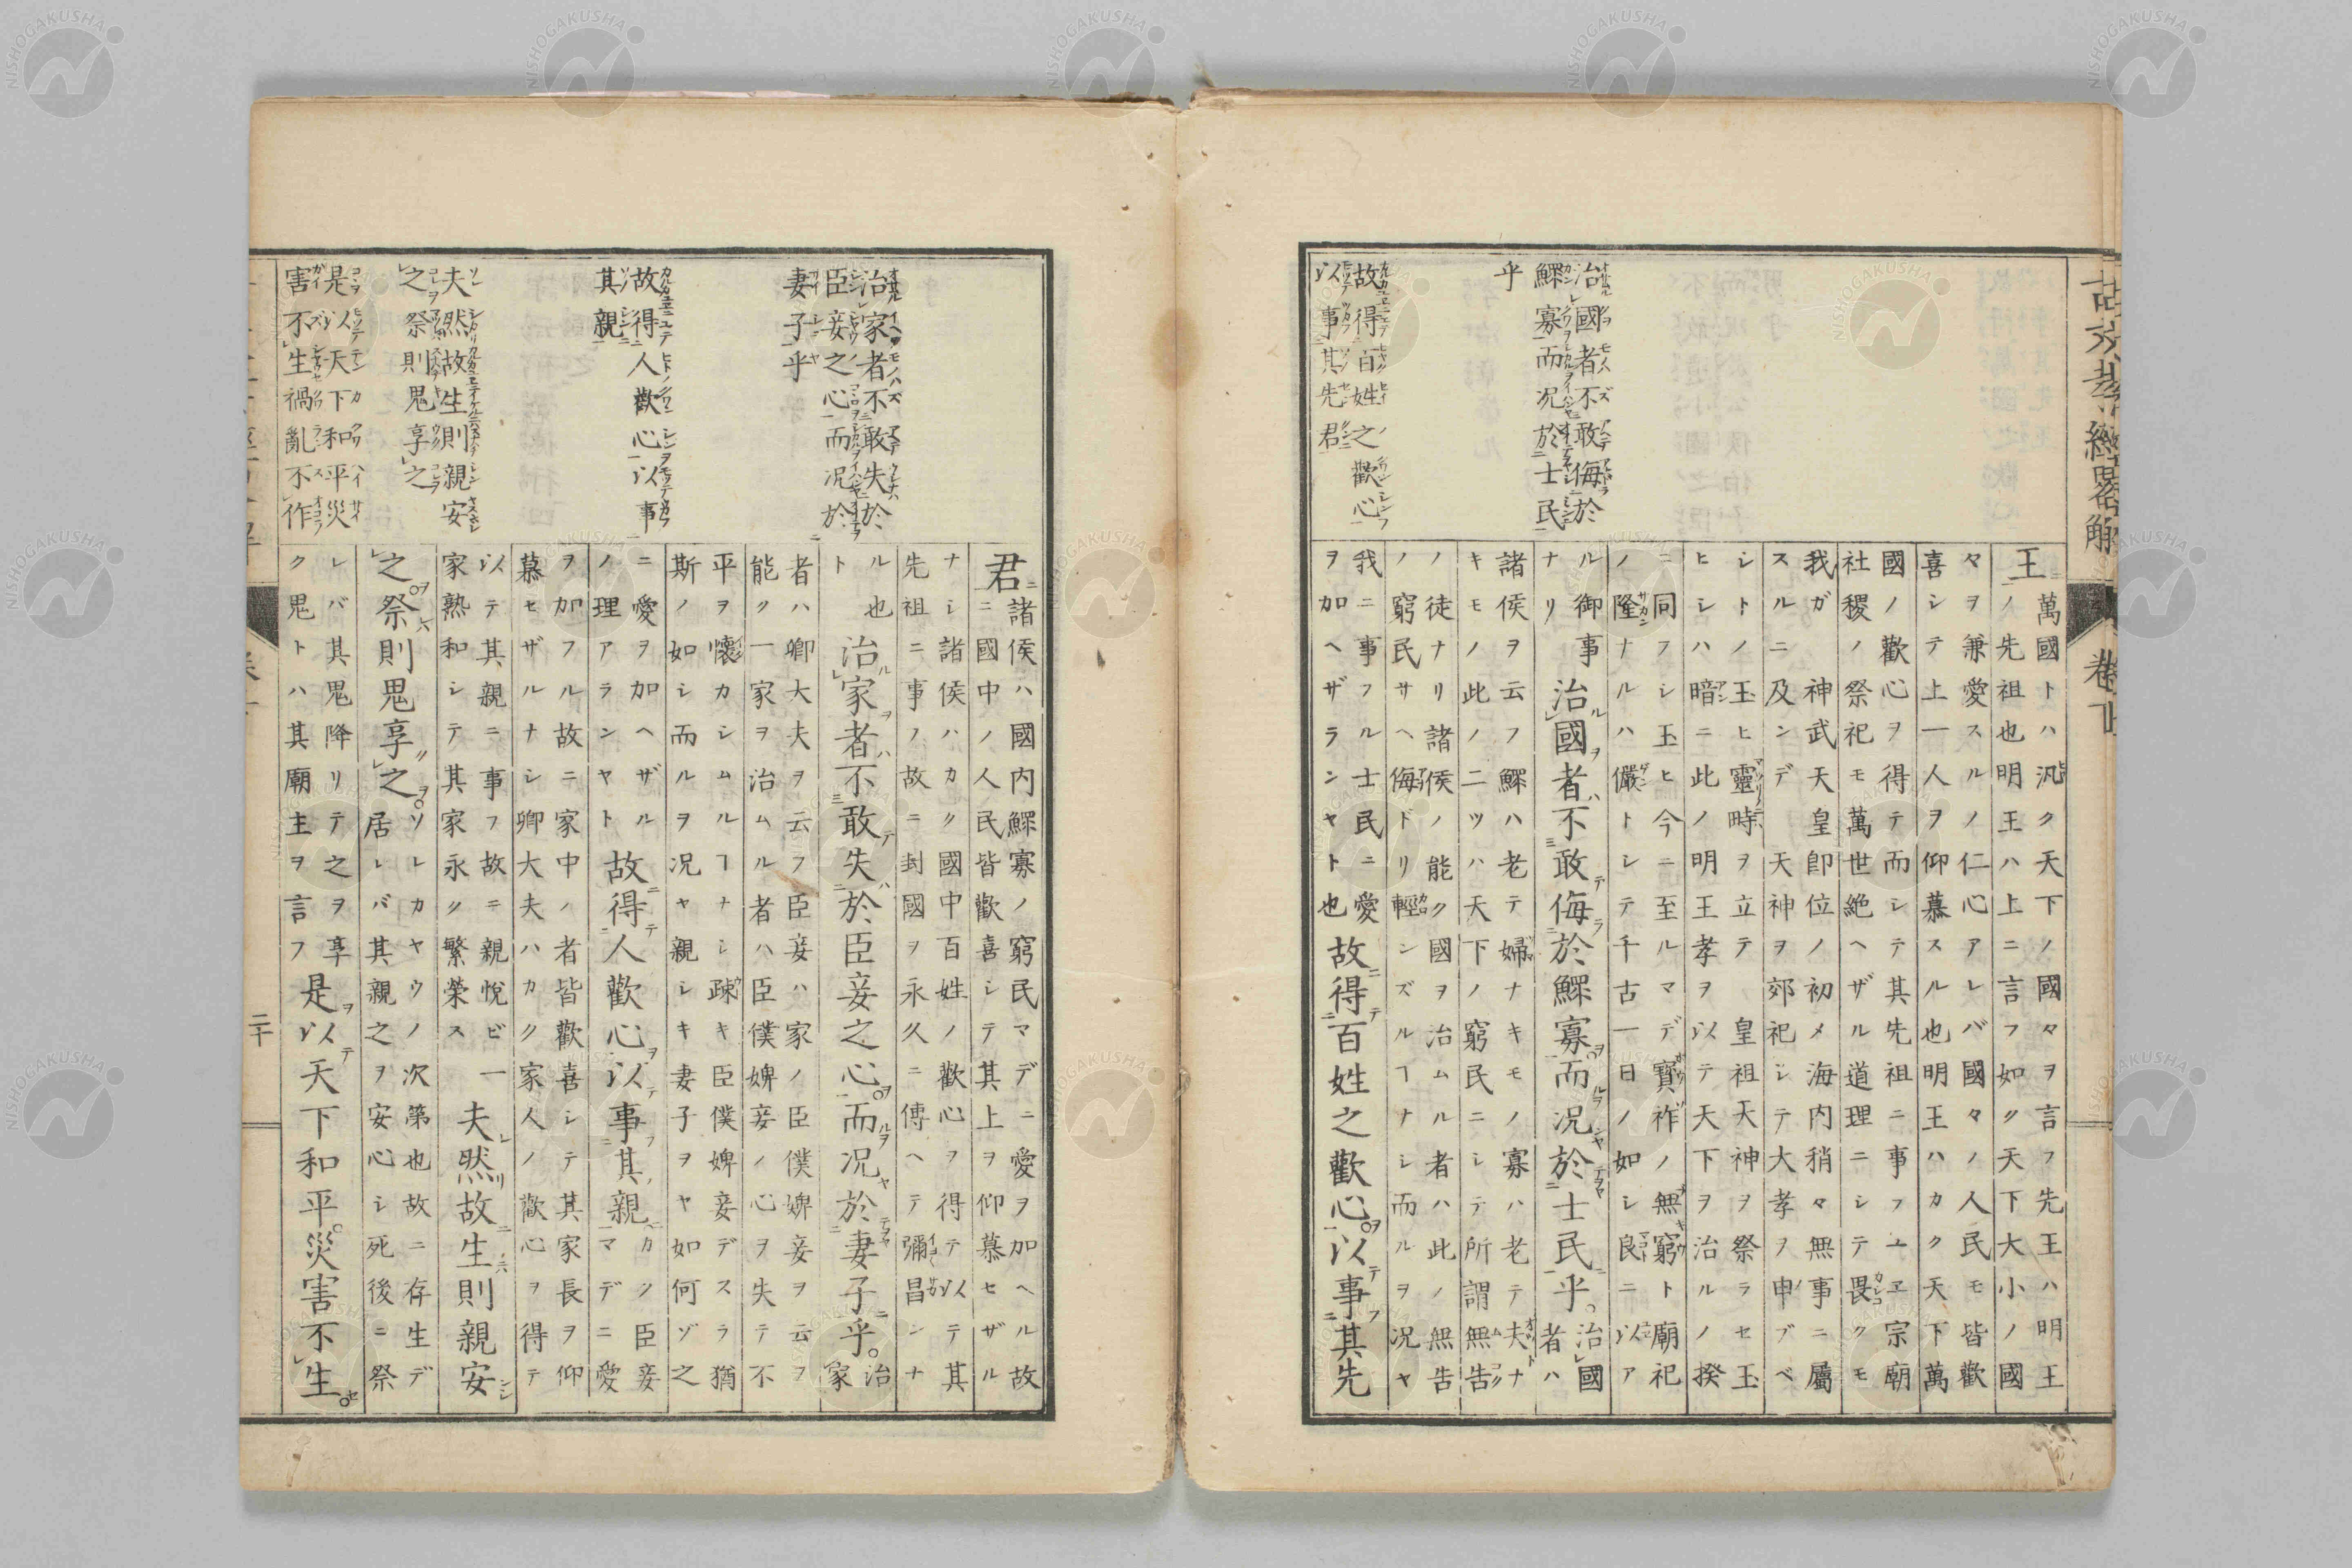 古文孝經畧解
卷下
治國者不敢侮於
鰥寡而況於士民
乎
故得百姓之歡心
以事其先君
王
萬國トハ汎ク天下ノ國々ヲ言フ先王ハ明王
ノ先祖也明王ハ上ニ言フ如ク天下大小ノ國
々ヲ兼愛スルノ仁心アレバ國々ノ人民モ皆歡
喜シテ上一人ヲ仰慕スル也明王ハカク天下萬
國ノ歡心ヲ得テ而シテ其先祖ニ事フユヱ宗廟
社稷ノ祭祀モ萬世絶ヘザル道理ニシテ畏クモ
我ガ神武天皇即位ノ初メ海内稍々無事ニ屬
スルニ及ンデ天神ヲ郊祀シテ大孝ヲ申ブベ
シトノ玉ヒ靈畤ヲ立テ皇祖天神ヲ祭ラセ玉
ヒシハ暗ニ此ノ明王孝ヲ以テ天下ヲ治ルノ揆
ニ同フシ玉ヒ今ニ至ルマデ寳祚ノ無窮ト廟祀
ノ隆ナルハ儼トシテ千古一日ノ如シ良ニ以ア
ル御事
ナリ
治國者不敢侮於鰥寡而況於士民乎
治國
者ハ
諸侯ヲ云フ鰥ハ老テ婦ナキモノ寡ハ老テ夫ナ
キモノ此ノ二ツハ天下ノ窮民ニシテ所謂無告
ノ徒ナリ諸侯ノ能ク國ヲ治ムル者ハ此ノ無告
ノ窮民サヘ侮ドリ輕ンズルヿナシ而ルヲ況ヤ
我ニ事フル士民ニ愛
ヲ加ヘザランヤト也
故得百姓之歡心以事其先
君
諸侯ハ國内鰥寡ノ窮民マデニ愛ヲ加ヘル故
ニ國中ノ人民皆歡喜シテ其上ヲ仰慕セザル
ナシ諸侯ハカク國中百姓ノ歡心ヲ得テ以テ其
先祖ニ事ノ故ニ封國ヲ永久ニ傳ヘテ彌昌ンナ
ル也
ト
治家者不敢失於臣妾之心而況於妻子乎
治
家
者ハ卿大夫ヲ云フ臣妾ハ家ノ臣僕婢妾ヲ云ヲ
能ク一家ヲ治ムル者ハ臣僕婢妾ノ心ヲ失テ不
平ヲ懷カシムルヿナシ疎キ臣僕婢妾デスラ猶
斯ノ如シ而ルヲ況ヤ親シキ妻子ヲヤ如何ゾ之
ニ愛ヲ加ヘザル
ノ理アランヤト
故得人歡心以事其親
カク臣妾
マデニ愛
ヲ加フル故ニ家中ノ者皆歡喜シテ其家長ヲ仰
慕セザルナシ卿大夫ハカク家人ノ歡心ヲ得テ
以テ其親ニ事フ故ニ親悅ビ一
家熟和シテ其家永ク繁榮ス
夫然故生則親安
之祭則鬼享之
ソレカヤウノ次第也故ニ存生デ
居レバ其親之ヲ安心シ死後ニ祭
レバ其鬼降リテ之ヲ享
ク鬼トハ其廟主ヲ言フ
是以天下和平災害不生
治家者不敢失於
臣妾之心而況於
妻子乎
故得人歡心以事
其親
夫然故生則親安
之祭則鬼享之
是以天下和平災
害不生禍亂不作
二十